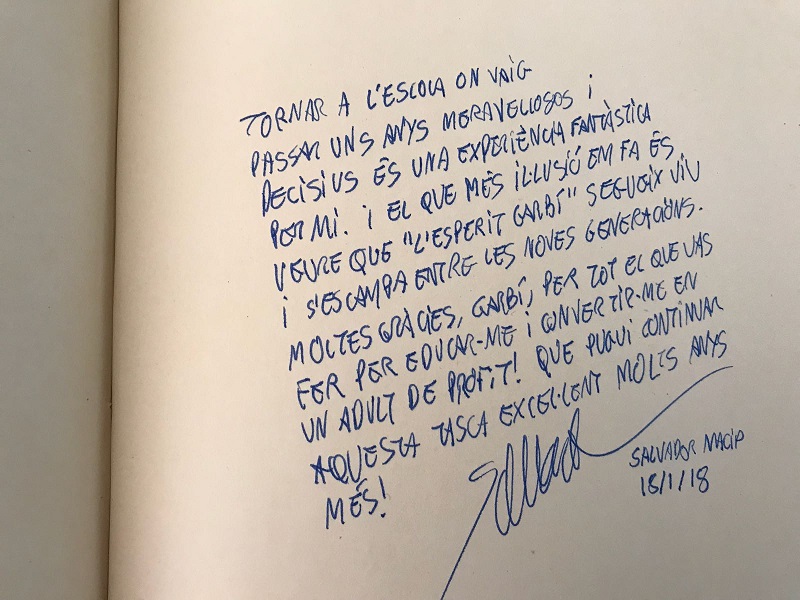 TORNAR A L'ESCOLA ON VAIG
PASSAR UNS ANYS MERAVELLOSOS i
DECISIUS ÉS UNA EXPERIÈNCIA FANTÀSTICA
PER MI. i EL QUE MÉS IL·LUSIÓ EM FA ÉS
VEURE QUE "L'ESPERIT GARBÍ" SEGUEIX VIU
i S'ESCAMPA ENTRE LES NOVES GENERACIONS.
MOLTES GRÀCIES, GARBÍ, PER TOT EL QUE VAS
FER PER EDUCAR-ME i CONVERTIR-ME EN
UN ADULT DE PROFIT! QUE PUGUI CONTINUAR
AQUESTA TASCA EXCEL·LENT MOLTS ANYS
MÉS!
SALVADOR MACIP
18/1/18